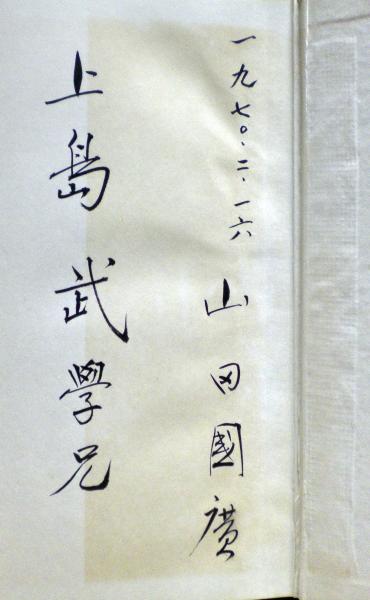 一九七〇.二.一六 山田國廣
上島武學兄